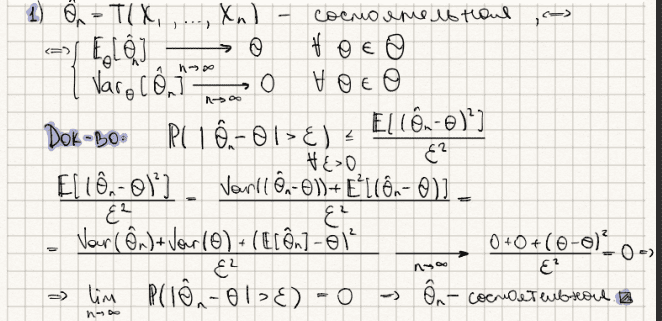 1) θ̂ₙ = T(X₁, ..., Xₙ) – состоятельная, <=>
<=> { E_θ[θ̂ₙ] →(n→∞) θ ∀ θ ∈ Θ
Var_θ[θ̂ₙ] →(n→∞) 0 ∀ θ ∈ Θ
Док-во: P(|θ̂ₙ - θ| > ε) ≤ E[(θ̂ₙ - θ)²] / ε²
∀ ε>0
E[(θ̂ₙ - θ)²] / ε² = (Var((θ̂ₙ - θ)) + E²[(θ̂ₙ - θ)]) / ε² =
= (Var(θ̂ₙ) + Var(θ) + (E[θ̂ₙ] - θ)²) / ε² →(n→∞) (0 + 0 + (θ - θ)²) / ε² = 0 =>
=> lim_{n→∞} P(|θ̂ₙ - θ| > ε) = 0 => θ̂ₙ – состоятельная